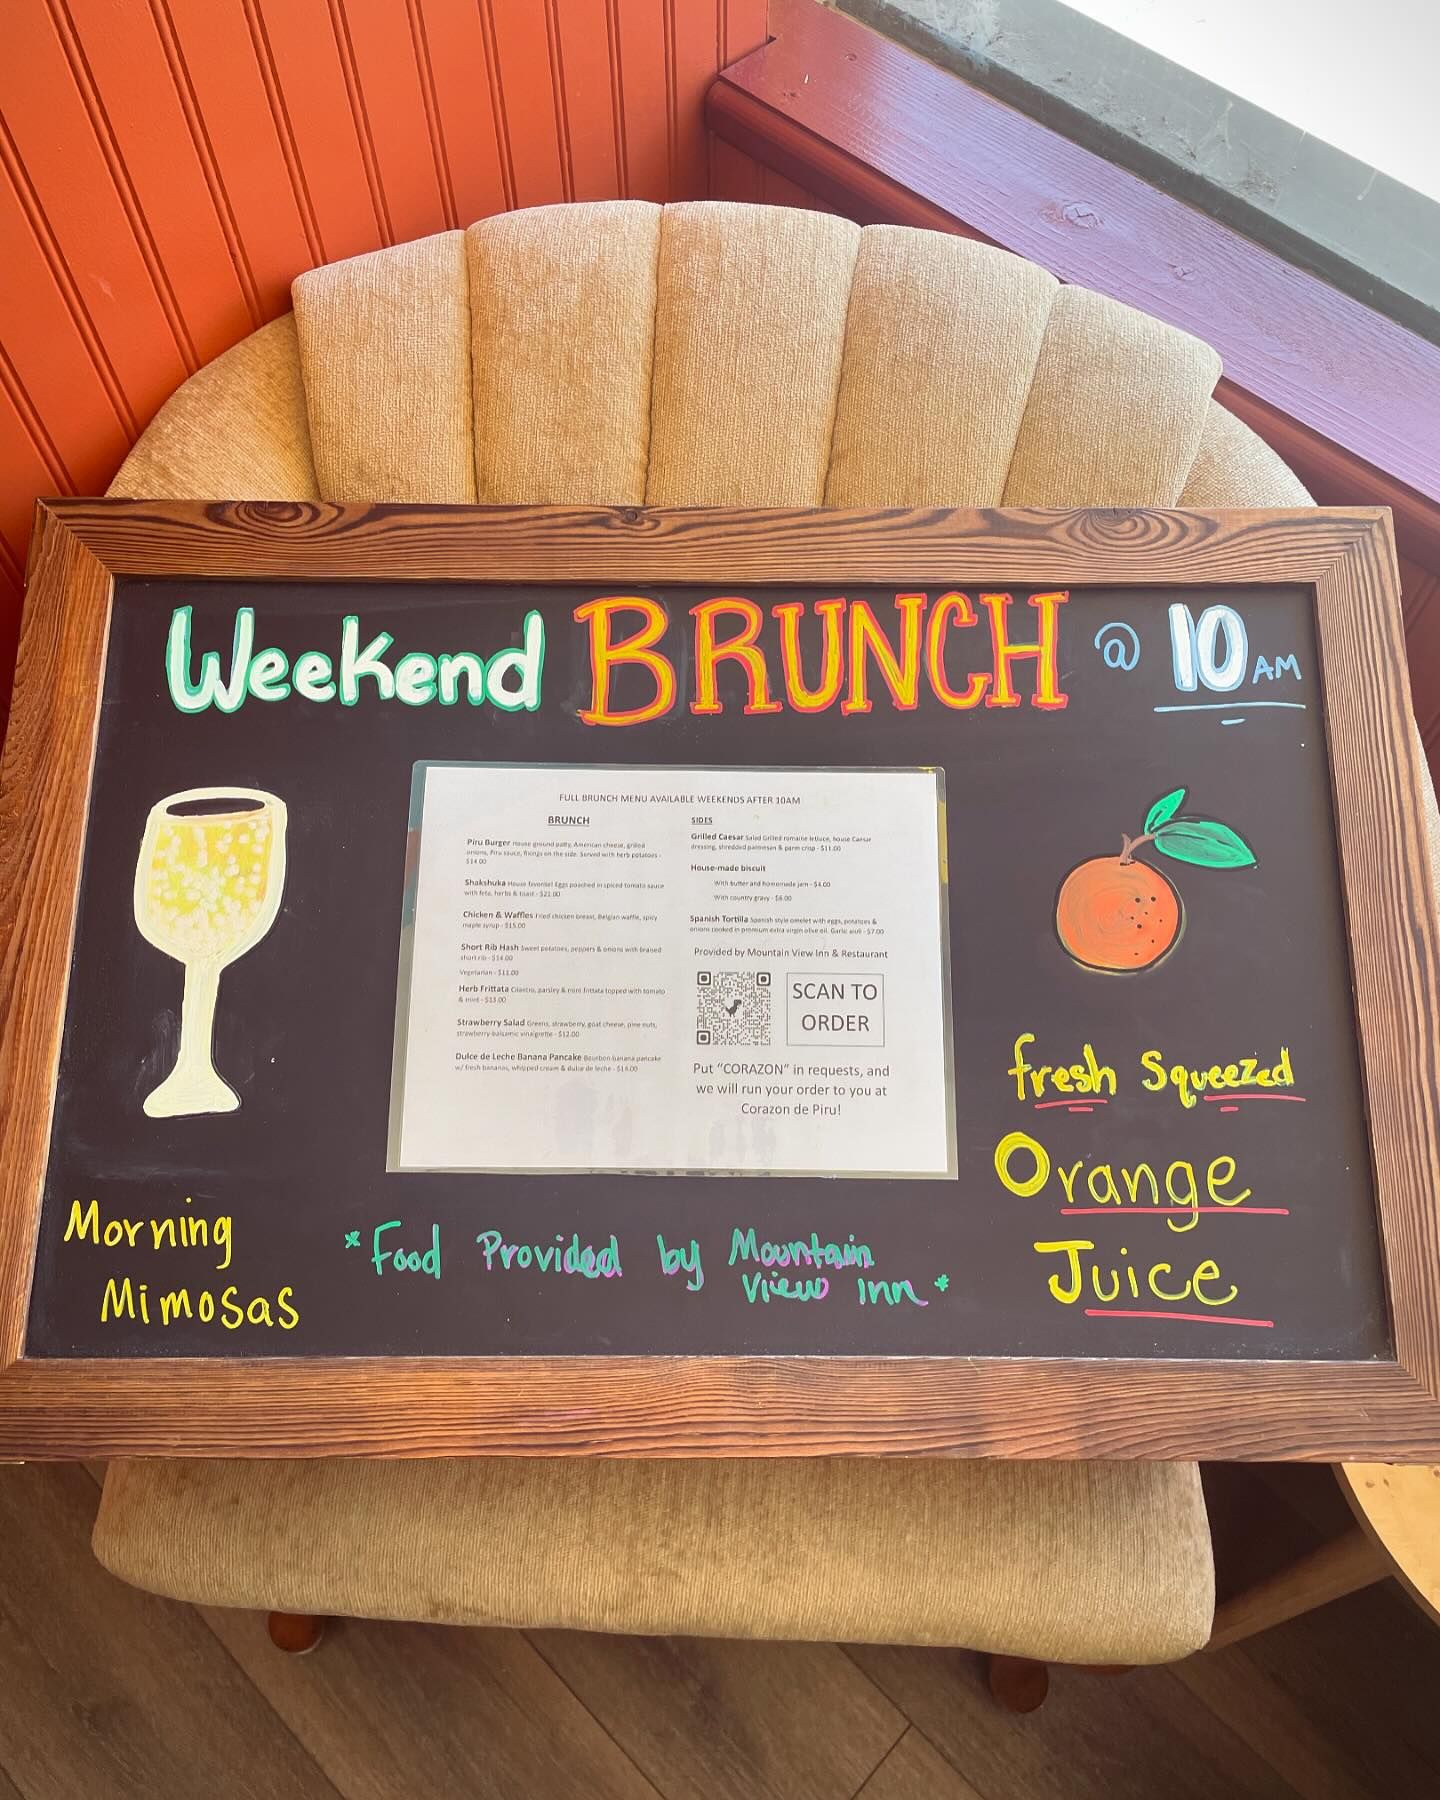 Weekend BRUNCH @ 10 AM
FULL BRUNCH MENU AVAILABLE WEEKENDS AFTER 10AM
BRUNCH
Piru Burger House ground patty, American cheese, grilled
onions, Piru sauce, fixings on the side. Served with herb potatoes -
$14.00
Shakshuka House favorite! Eggs poached in spiced tomato sauce
with feta, herbs & toast - $21.00
Chicken & Waffles Fried chicken breast, Belgian waffle, spicy
maple syrup - $15.00
Short Rib Hash Sweet potatoes, peppers & onions with braised
short rib - $14.00
Vegetarian - $11.00
Herb Frittata Cilantro, parsley & mint frittata topped with tomato
& mint - $13.00
Strawberry Salad Greens, strawberry, goat cheese, pine nuts,
strawberry-balsamic vinaigrette - $12.00
Dulce de Leche Banana Pancake Bourbon-banana pancake
w/ fresh bananas, whipped cream & dulce de leche -
SIDES
Grilled Caesar Salad Grilled romaine lettuce, house Caesar
dressing, shredded parmesan & parm crisp - $11.00
House-made biscuit
With butter and homemade jam - $4.00
With country gravy - $6.00
Spanish Tortilla Spanish style omelet with eggs, potatoes &
onions cooked in premium extra virgin olive oil. Garlic aioli - $7.00
Provided by Mountain View Inn & Restaurant
SCAN TO
ORDER
Put “CORAZON” in requests, and
we will run your order to you at
Corazon de Piru!
fresh Squeezed
Orange
Juice
Morning
Mimosas
*Food Provided by Mountain
View Inn*